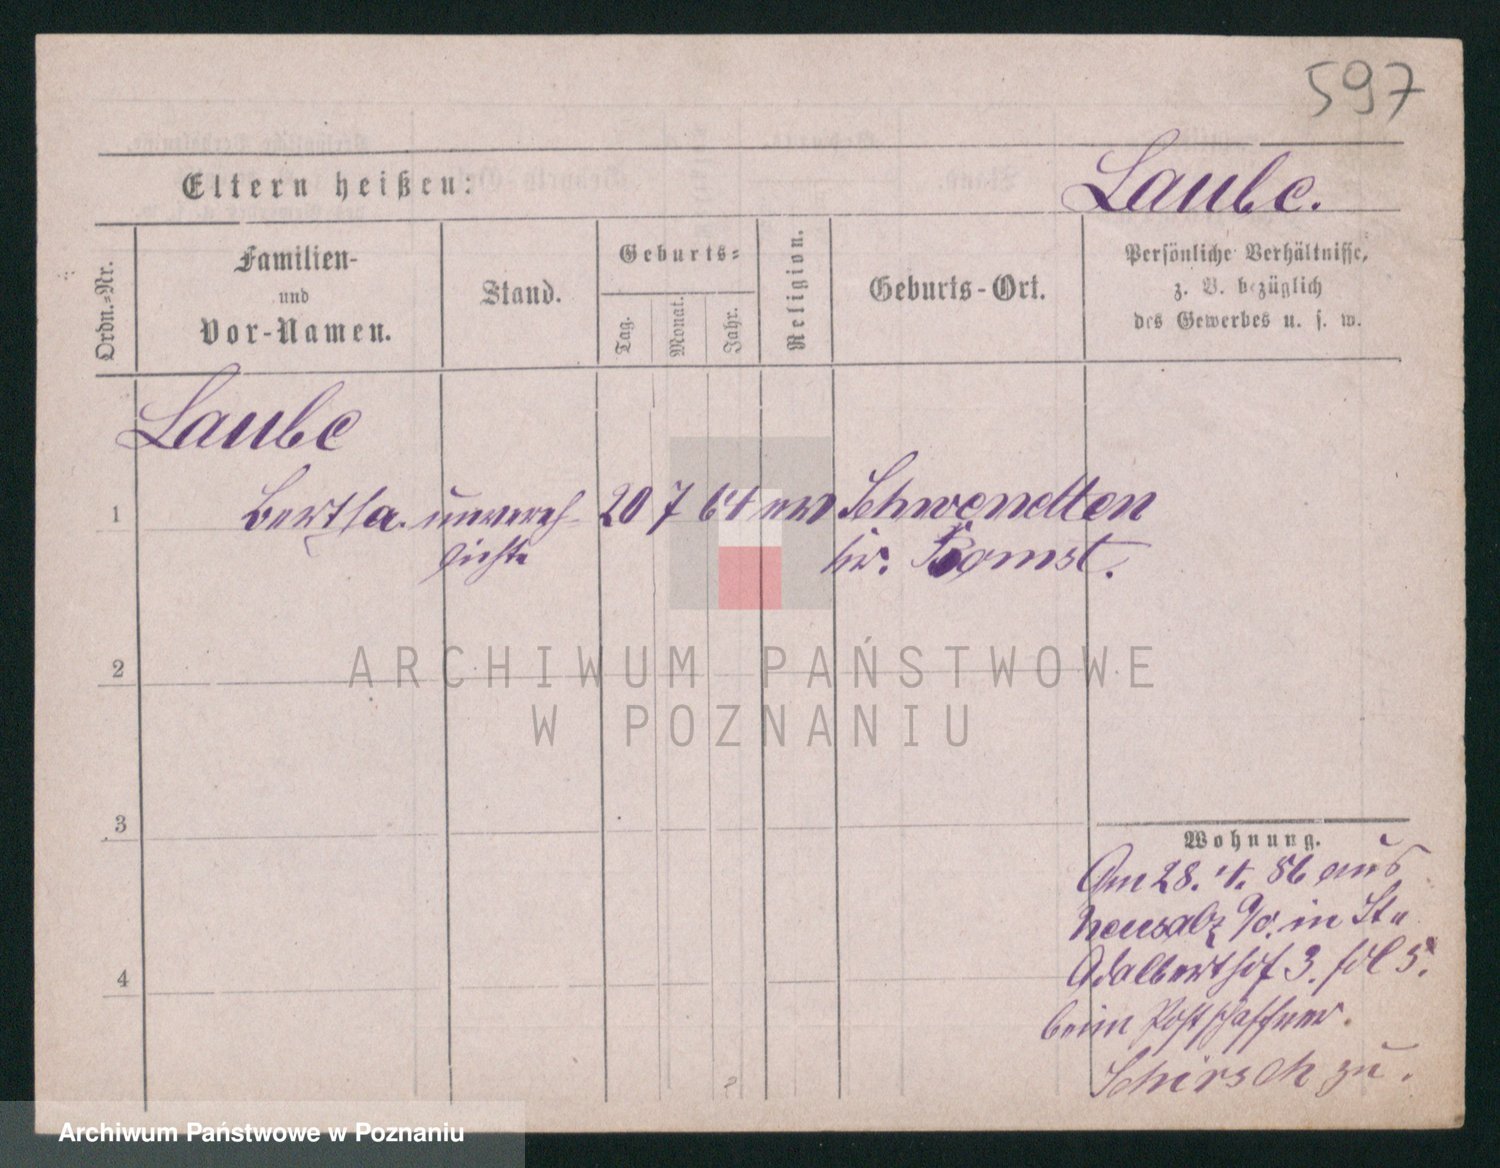 597
Eltern heißen:
Laube.
Ordn.-Nr.
Familien-
und
Vor-Namen.
Stand.
Geburts-
Tag.
Monat.
Jahr.
Religion.
Geburts-Ort.
Persönliche Verhältnisse,
z. B. bezüglich
des Gewerbes u. s. w.
Laube
1 Bertha. unvereh- 20 7 64 ev Schwendten
lichte Kr. Bomst.
2
ARCHIWUM PAŃSTWOWE
W POZNANIU
3
Wohnung.
Am 28. 4. 86 aus
Neusalz a/o. in St.
4
Adalberthof 3.
beim Postschaffner.
Schirsch zu.
Archiwum Państwowe w Poznaniu